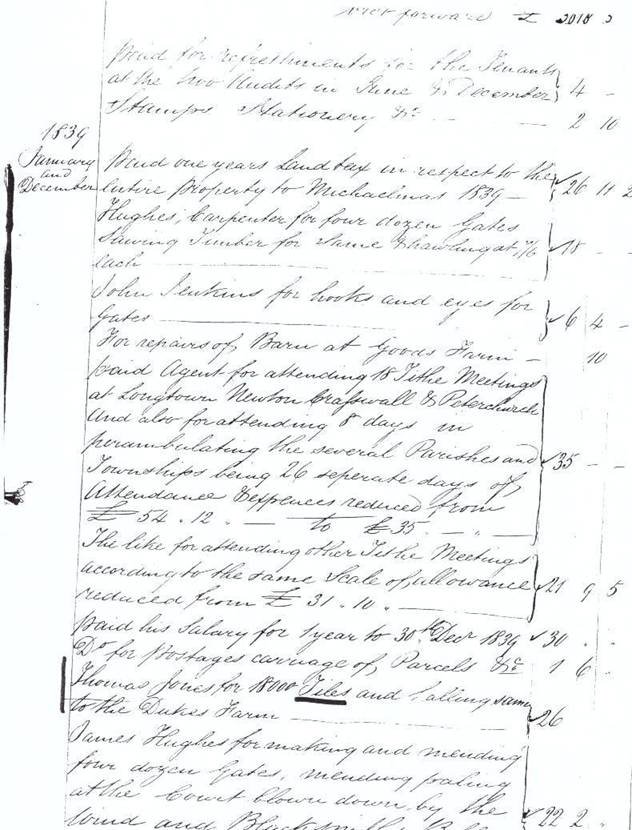 forward £ 3018 3
paid for refreshments for the Tenants
at the two Audits in June & December 4 -
Stamps Stationery &c - - 2 10
1839
January
and
December
paid one years Land tax in respect to the
entire property to Michaelmas 1839 - 26 11 2
Hughes, Carpenter for four dozen Gates
Sawing Timber for same & hawling at 7/6 18 - -
each
John Jenkins for hooks and eyes for
Gates 6 4 -
For repairs of Barn at Goods Farm - 10
paid Agent for attending 18 Tithe Meetings
at Longtown Newton Crasswall & Peterchurch
And also for attending 8 days in
perambulating the several Parishes and
Townships being 26 seperate days of 35 - -
Attendance & expences reduced from
£ 54 . 12 . - to £ 35 . - . -
The like for attending other Tithe Meetings
according to the same Scale of allowance 21 9 5
reduced from £ 31 . 10 . -
paid his Salary for 1 year to 30th Decr 1839 30 . .
Do for postages carriage of Parcels &c 1 6 .
Thomas Jones for 18000 Tiles and halling same
to the Dukes Farm 26
James Hughes for making and mending
four dozen Gates, mending paling
at the Court blown down by the 22 2 .
Wind and